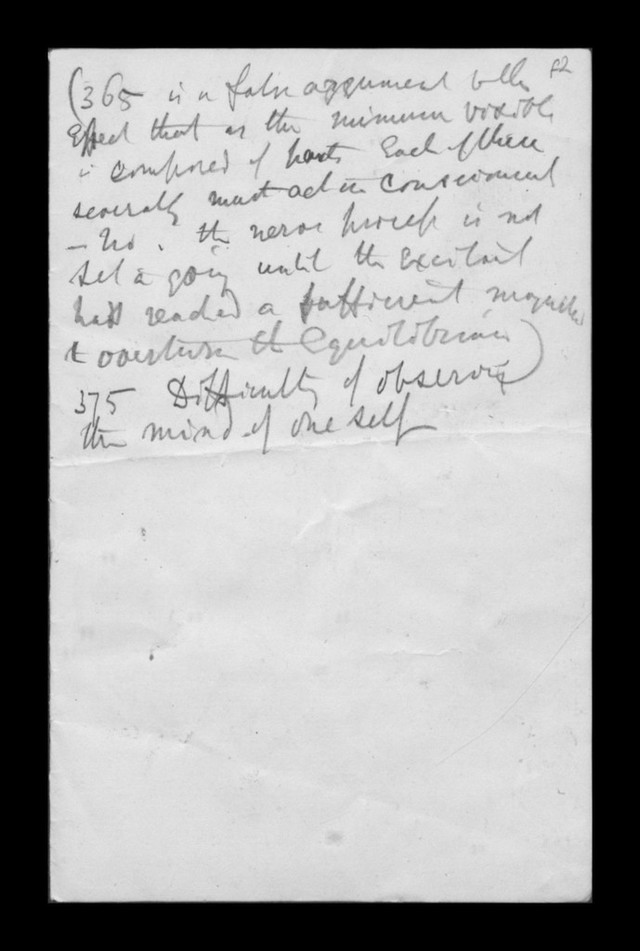 (365 is a false argument to the p2
Effect that as the minimum visible
is composed of parts Each of these
severally must act on Consciousness
– No. the nerve process is not
set a going until the Excitant
has reached a sufficient magnitude
to overturn the Equilibrium)
375 Difficulty of observing
the mind of oneself